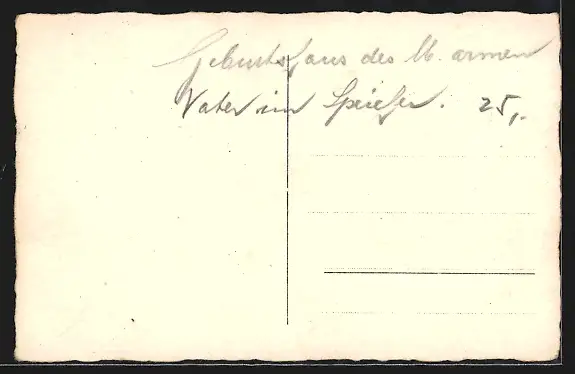 Geburtshaus des M. armen
Vater im Speicher. 25,-